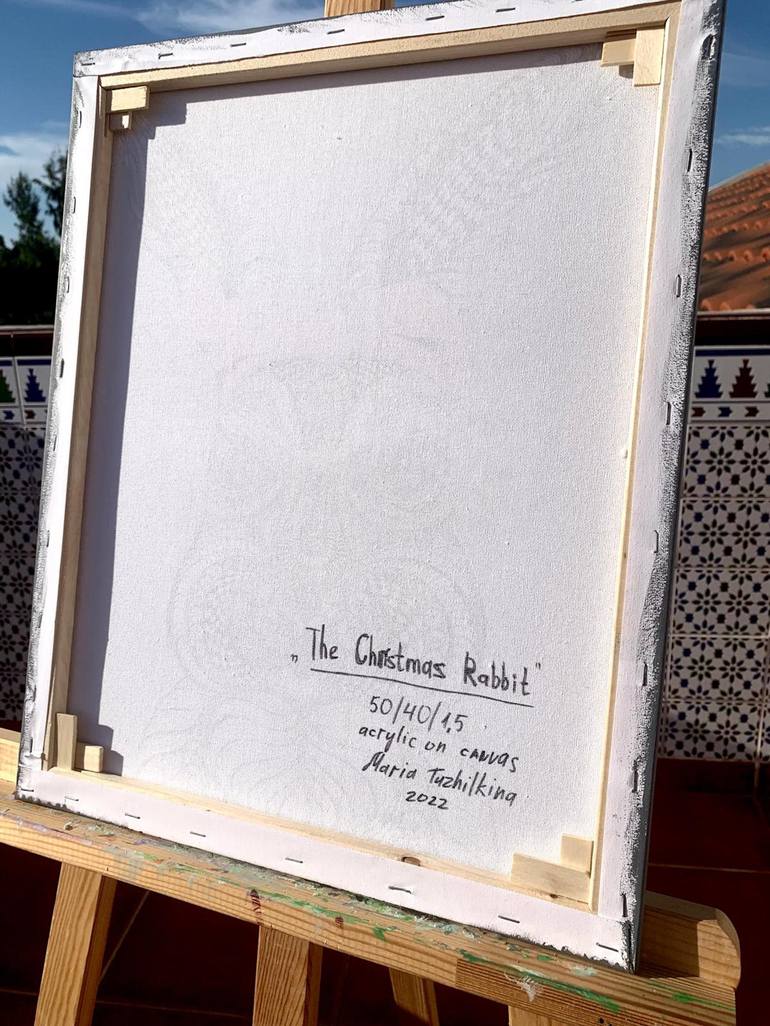 „The Christmas Rabbit"
50/40/1,5
acrylic on canvas
Maria Tuzhilkina
2022